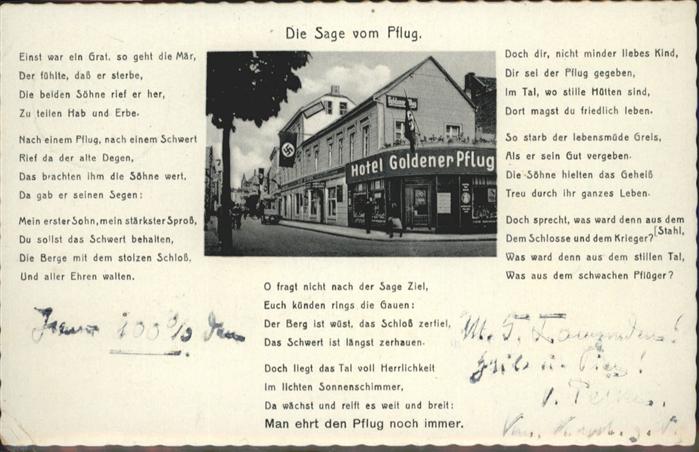 Die Sage vom Pflug.
Einst war ein Graf, so geht die Mär,
Der fühlte, daß er sterbe,
Die beiden Söhne rief er her,
Zu teilen Hab und Erbe.
Nach einem Pflug, nach einem Schwert
Rief da der alte Degen,
Das brachten ihm die Söhne wert,
Da gab er seinen Segen:
Mein erster Sohn, mein stärkster Sproß,
Du sollst das Schwert behalten,
Die Berge mit dem stolzen Schloß,
Und aller Ehren walten.
Hotel Goldener Pflug
Doch dir, nicht minder liebes Kind,
Dir sei der Pflug gegeben,
Im Tal, wo stille Hütten sind,
Dort magst du friedlich leben.
So starb der lebensmüde Greis,
Als er sein Gut vergeben.
Die Söhne hielten das Geheiß
Treu durch ihr ganzes Leben.
Doch sprecht, was ward denn aus dem
[Stahl,
Dem Schlosse und dem Krieger?
Was ward denn aus dem stillen Tal,
Was aus dem schwachen Pflüger?
O fragt nicht nach der Sage Ziel,
Euch künden rings die Gauen:
Der Berg ist wüst, das Schloß zerfiel,
Das Schwert ist längst zerhauen.
Doch liegt das Tal voll Herrlichkeit
Im lichten Sonnenschimmer,
Da wächst und reift es weit und breit:
Man ehrt den Pflug noch immer.
100%